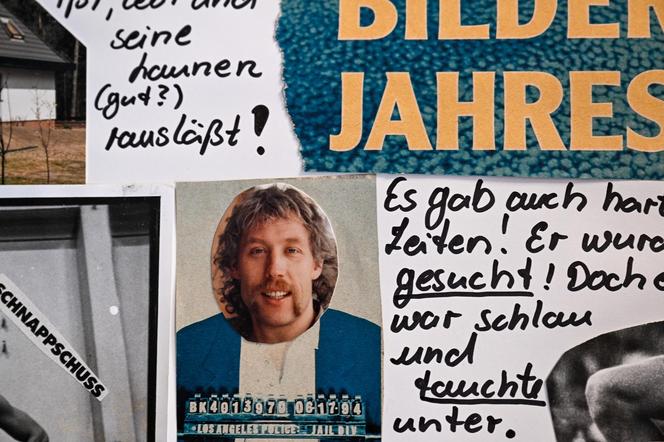 und
seine
Launen
(gut?)
rausläßt!
BILDER
JAHRES
Es gab auch hart
Zeiten! Er wurd
gesucht! Doch e
war schlau
und
tauchte
unter.
SCHNAPPSCHUSS
BK4013970 08-17-94
LOS ANGELES POLICE - JAIL DIV